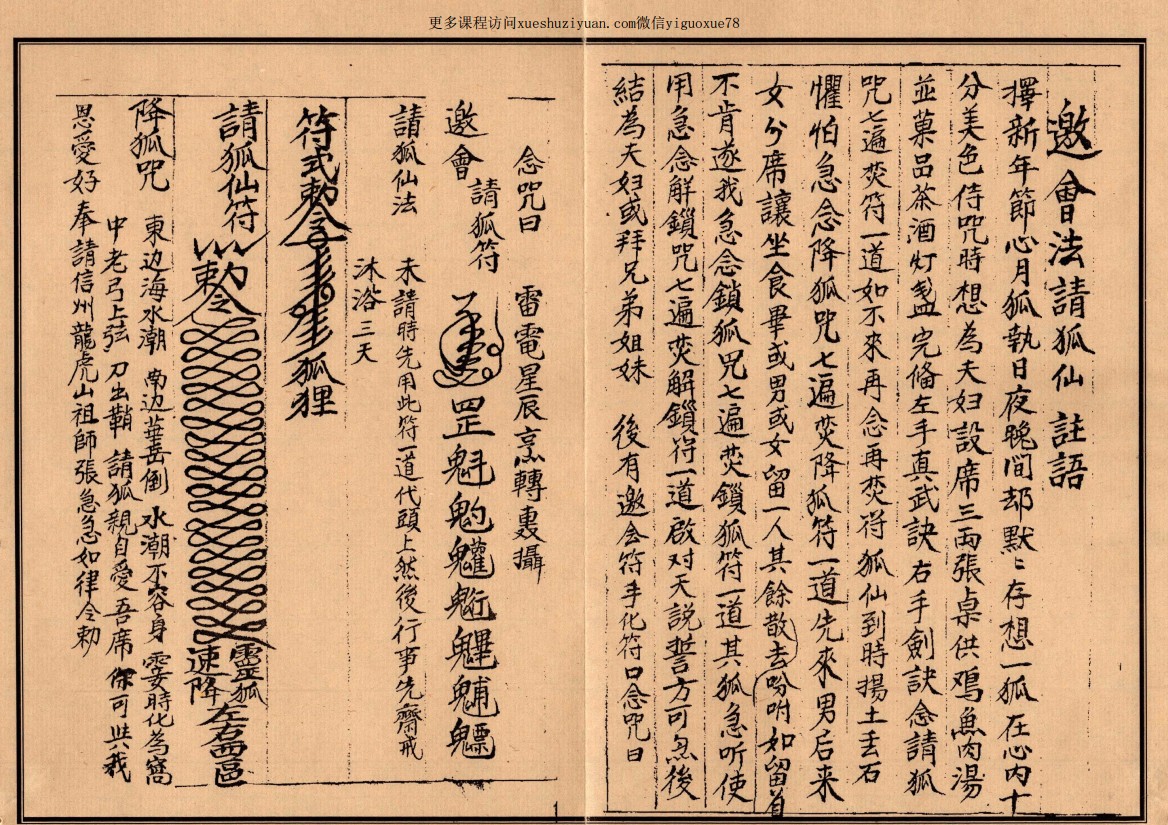 更多课程访问xueshuziyuan.com微信yiguoxue78
邀會法請狐仙 註語
擇新年節心月狐執日夜晚间却默〻存想一狐在心内十
分美色侍咒時想為夫妇設席三両張桌供鸡魚肉湯
並菓品茶酒灯盞完俻左手真武訣右手劍訣念請狐
咒七遍焚符一道如不來再念再焚符狐仙到時揚土丢石
懼怕急念降狐咒七遍焚降狐符一道先來男后来
女分席讓坐食畢或男或女留一人其餘散去吩咐如留首
不肯遂我急念鎖狐咒七遍焚鎖狐符一道其狐急听使
用急念解鎖咒七遍焚解鎖符一道啟对天説誓方可忽後
結為夫妇或拜兄弟姐妹 後有邀会符手化符口念咒曰
念咒曰 雷電星辰烹轉轟攝
邀會 請狐符 罡魁魈魓
請狐仙法 未請時先用此符一道代頭上然後行事先齋戒
沐浴三天
符式敕令 狐狸
請狐仙符 敕令 靈狐速降左右西區
降狐咒 東边海水潮 南边華岳倒 水潮不容身 霎時化為窩
中老弓上弦 刀出鞘 請狐親自愛吾席 你可共我
恩愛好 奉請信州龍虎山祖師張急急如律令勅
1